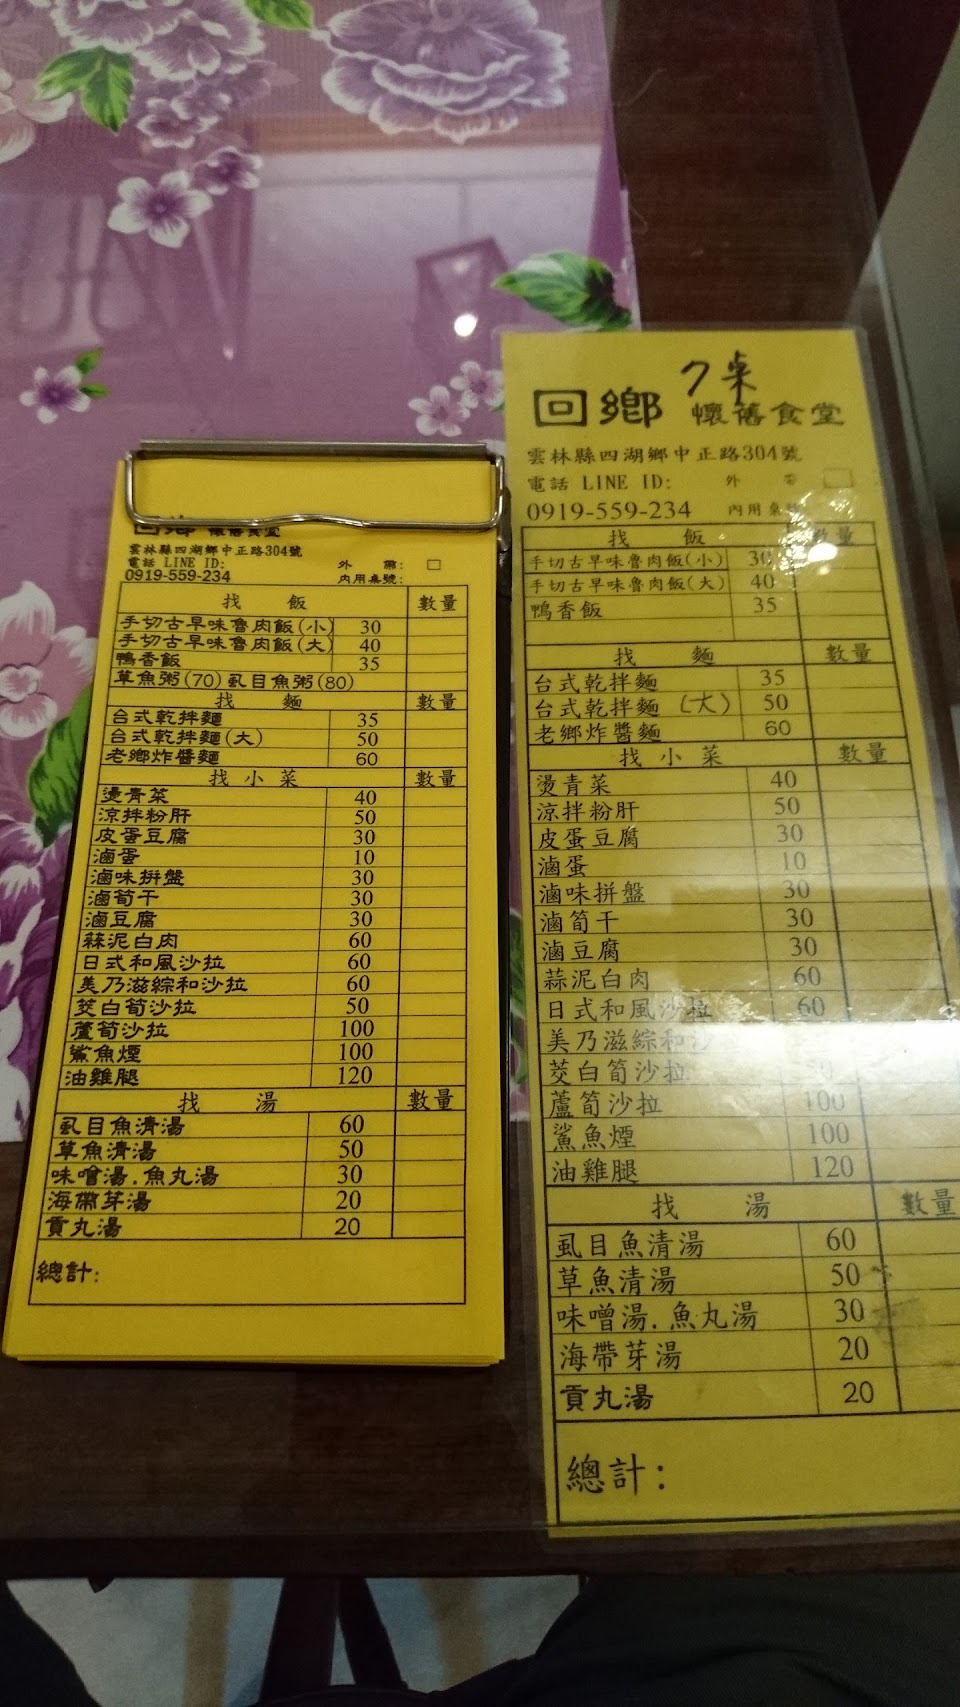 回鄉 懷舊食堂
雲林縣四湖鄉中正路304號
電話 LINE ID: 外 帶: □
0919-559-234 內用桌號:
找 飯 數量
手切古早味魯肉飯(小) 30
手切古早味魯肉飯(大) 40
鴨香飯 35
草魚粥(70)虱目魚粥(80)
找 麵 數量
台式乾拌麵 35
台式乾拌麵(大) 50
老鄉炸醬麵 60
找小菜 數量
燙青菜 40
涼拌粉肝 50
皮蛋豆腐 30
滷蛋 10
滷味拼盤 30
滷筍干 30
滷豆腐 30
蒜泥白肉 60
日式和風沙拉 60
美乃滋綜和沙拉 60
茭白筍沙拉 50
蘆筍沙拉 100
鯊魚煙 100
油雞腿 120
找 湯 數量
虱目魚清湯 60
草魚清湯 50
味噌湯.魚丸湯 30
海帶芽湯 20
貢丸湯 20
總計:
7桌
回鄉 懷舊食堂
雲林縣四湖鄉中正路304號
電話 LINE ID: 外 帶 □
0919-559-234 內用桌
找 飯 數量
手切古早味魯肉飯(小) 30
手切古早味魯肉飯(大) 40
鴨香飯 35
找 麵 數量
台式乾拌麵 35
台式乾拌麵(大) 50
老鄉炸醬麵 60
找小菜 數量
燙青菜 40
涼拌粉肝 50
皮蛋豆腐 30
滷蛋 10
滷味拼盤 30
滷筍干 30
滷豆腐 30
蒜泥白肉 60
日式和風沙拉 60
美乃滋綜和沙
茭白筍沙拉
蘆筍沙拉 100
鯊魚煙 100
油雞腿 120
找 湯 數量
虱目魚清湯 60
草魚清湯 50
味噌湯.魚丸湯 30
海帶芽湯 20
貢丸湯 20
總計: